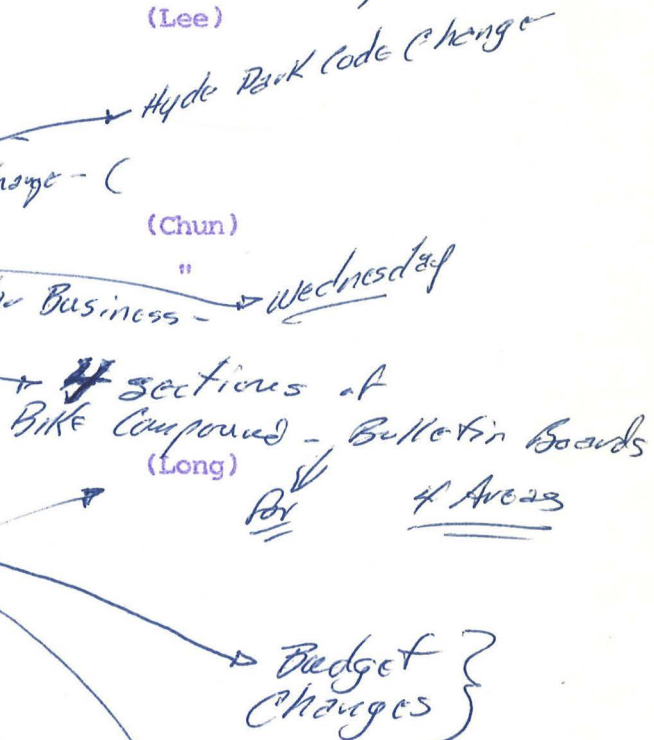 (Lee)
Hyde Park Code Change
hange - (
(Chun)
"
Business - Wednesday
4 sections of
Bike Compound - Bulletin Boards
(Long)
for 4 Areas
Budget }
Changes